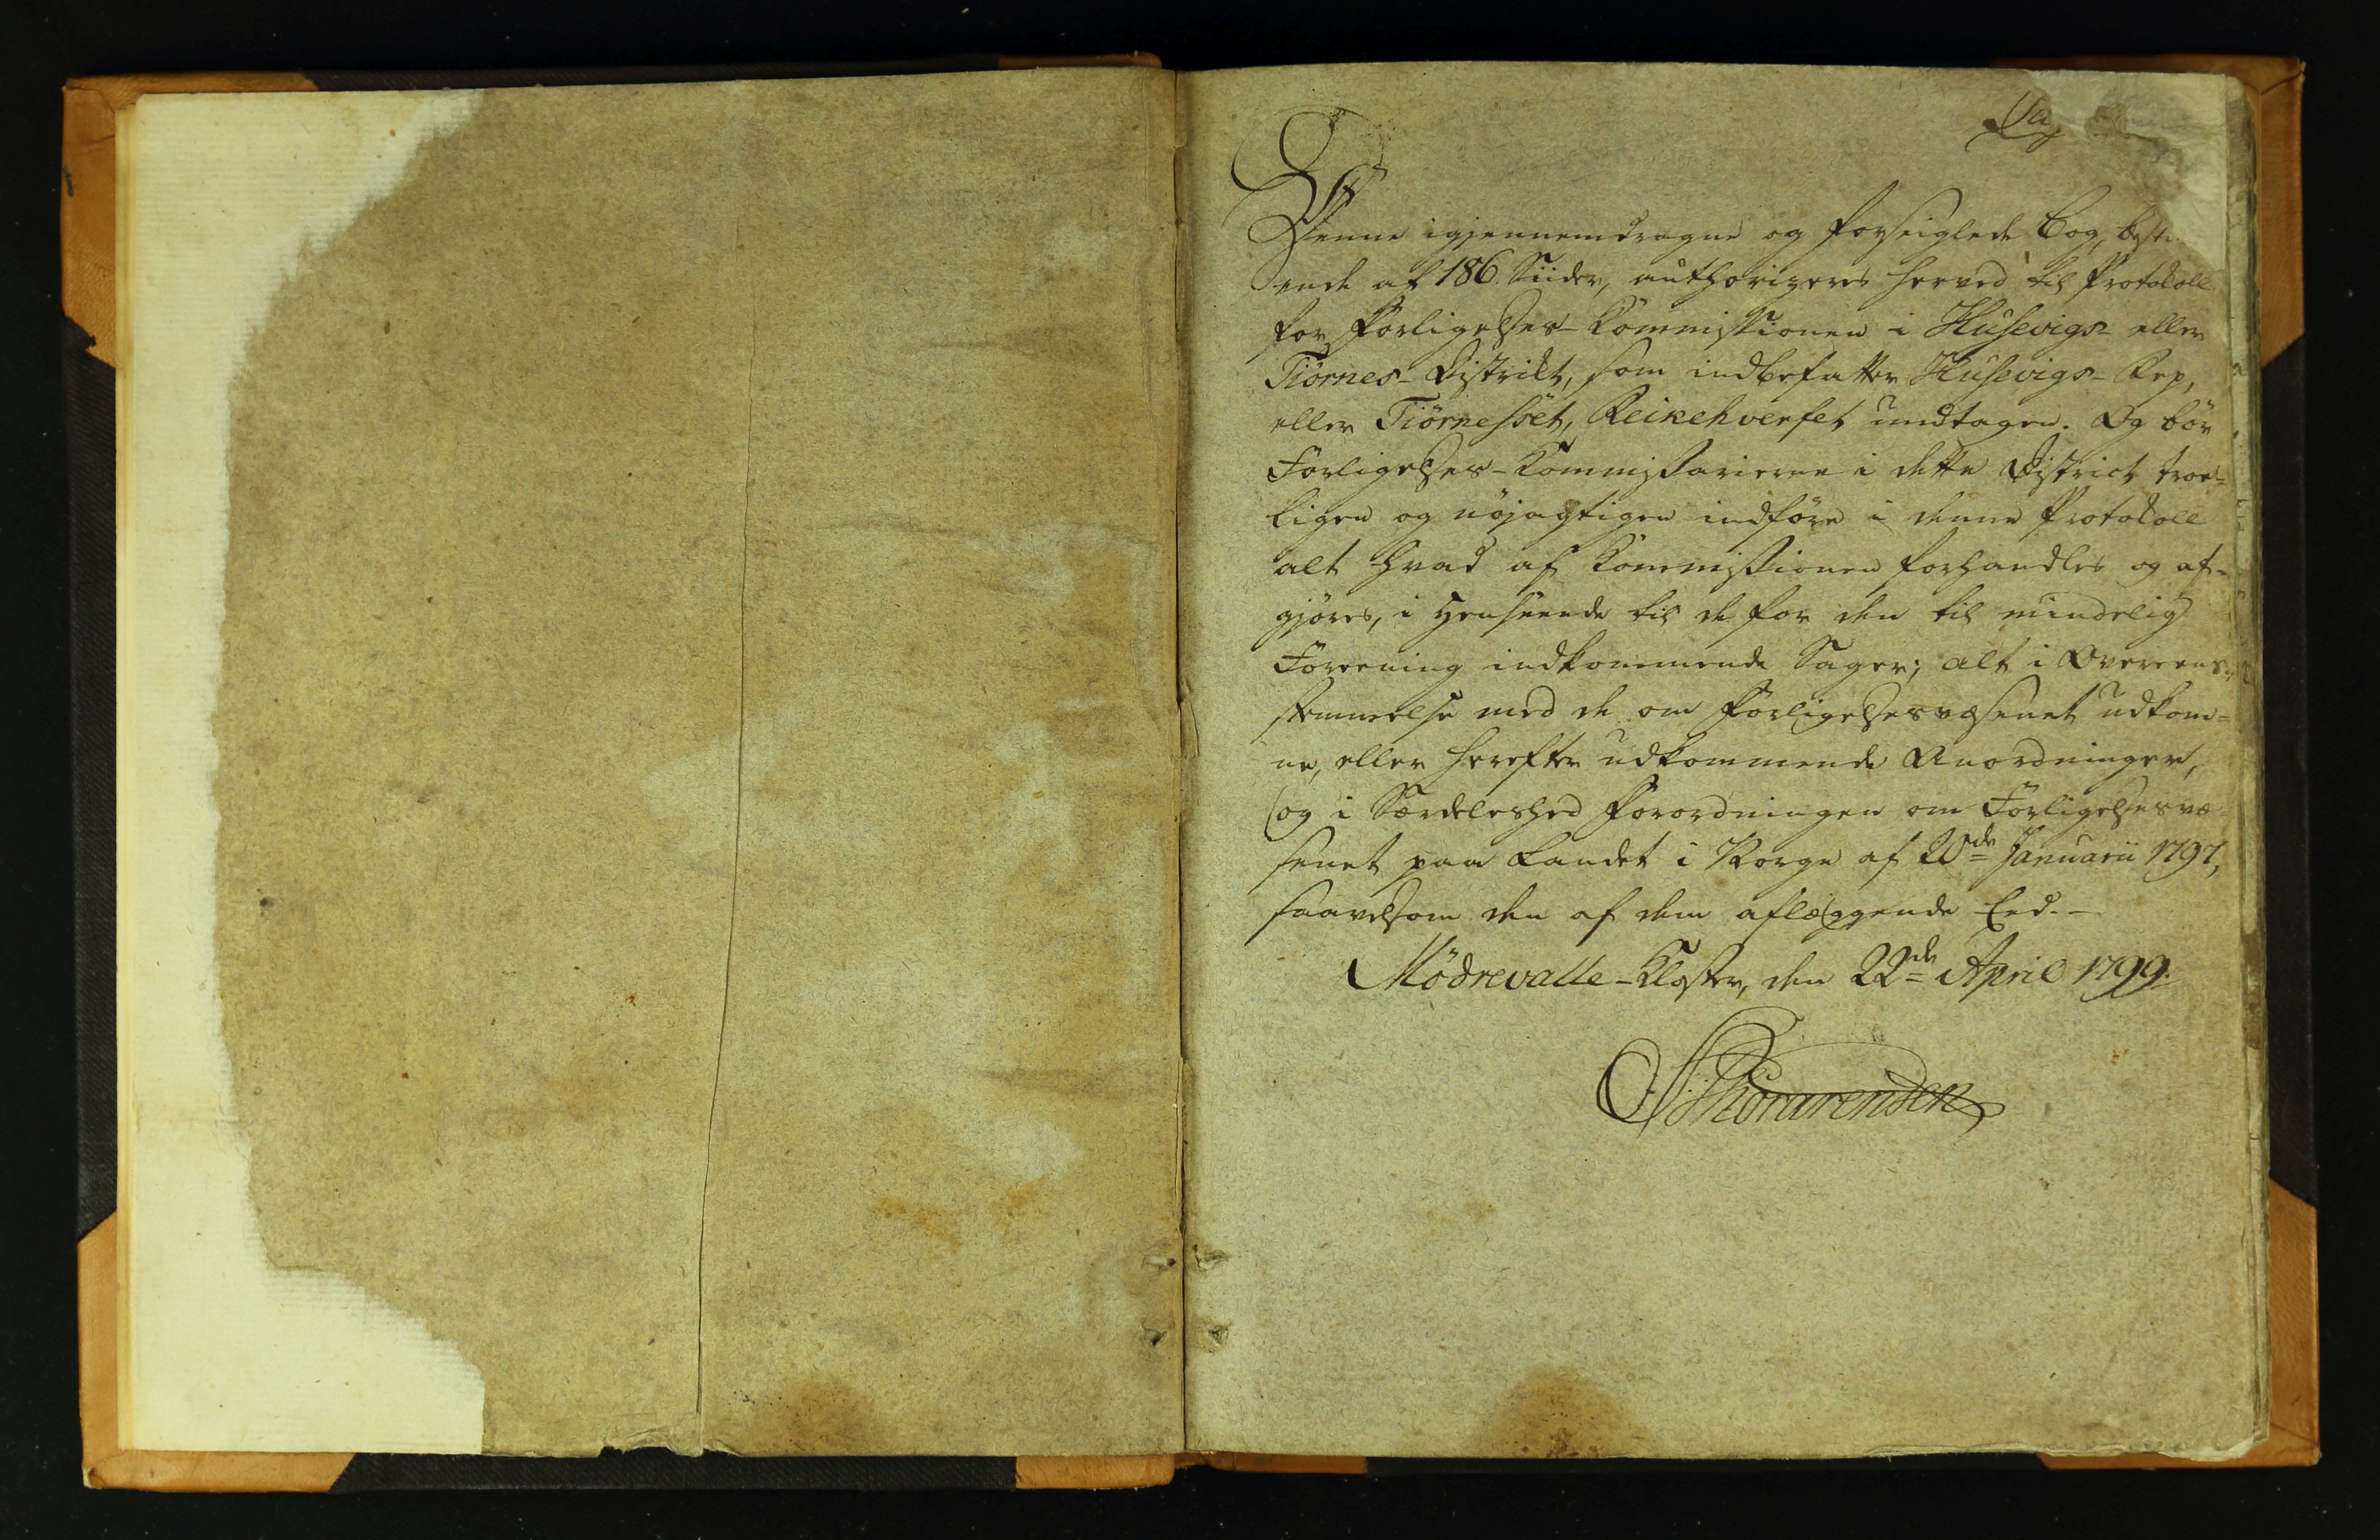 Denne igjennemdragne og forseiglede Bog, beste-
ende af 186. Siider, authorizeres herved til Protokoll
for Forligelses-Kommissionen i Husevigs- eller
Tiörnes-Distrikt, som indbefatter Husevigs-Rep,
eller Tiörnessöet, Reikehverfet undtagen. Og bör
Forligelses-Kommissarierne i dette District troe-
ligen og nöjagtigen indföre i denne Protokoll
alt hvad af Kommissionen forhandles og af-
gjöres, i Henseende til de for den til mindelig
Foreening indkommende Sager; alt i Overeens-
stemmelse med de om Forligelsesvæsenet udkom-
ne, eller herefter udkommende Anordninger,
(og i Særdeleshed Forordningen om Forligelsesvæ-
senet paa Landet i Norge af 20de Januarii 1797,
saavelsom den af dem aflæggende Eed.-
Mödrevalle-Kloster, den 22de April 1799.
Thorarensen